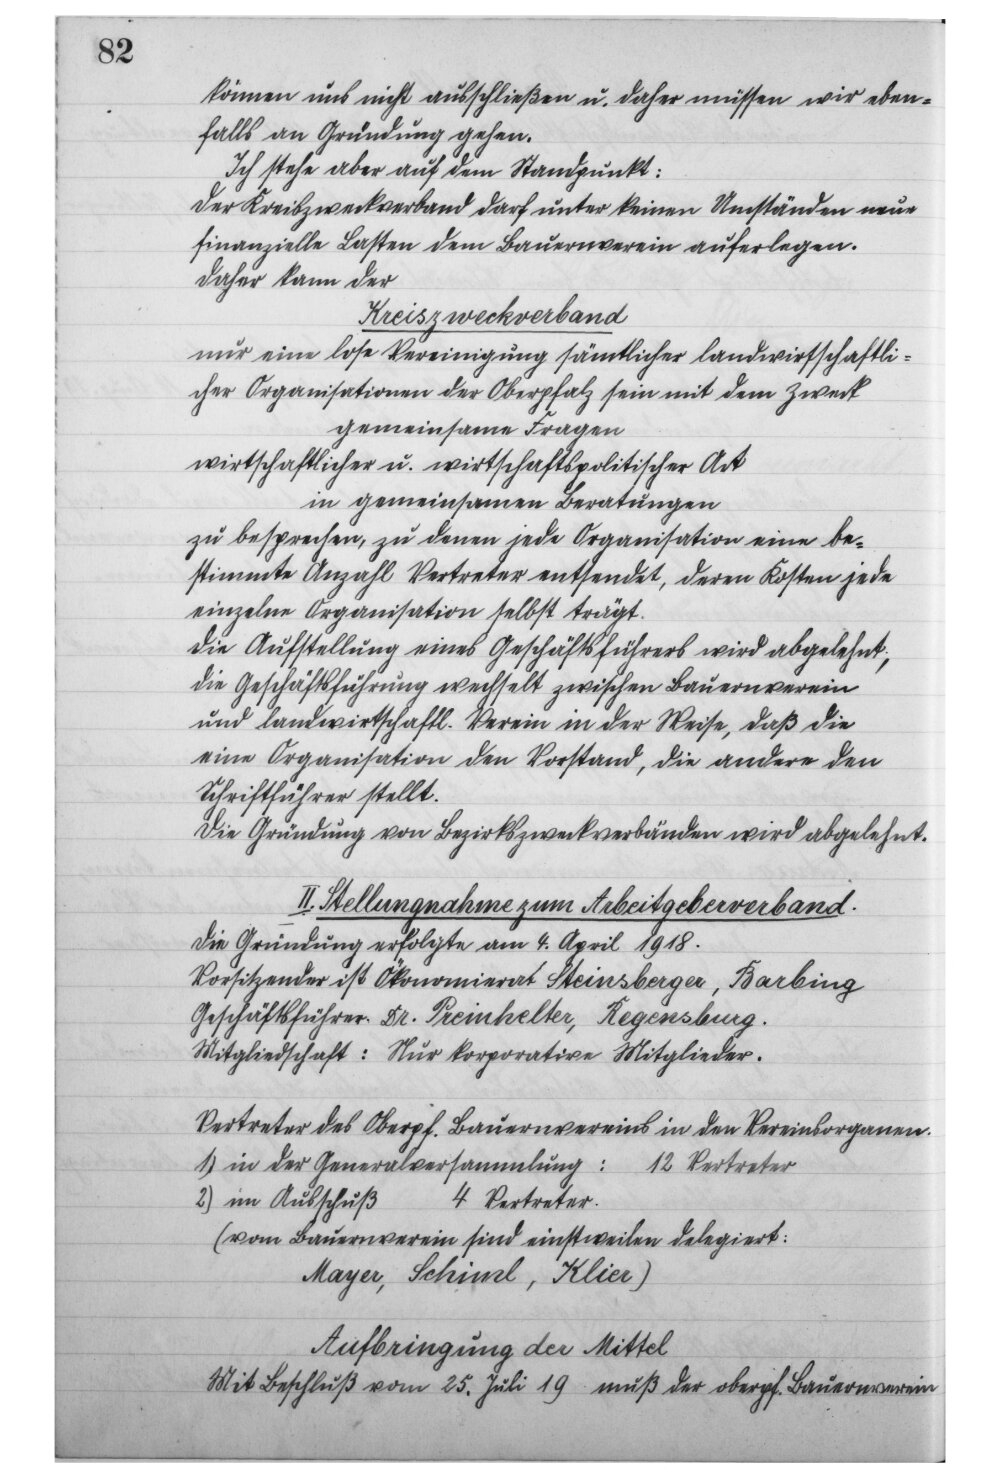 82
können uns nicht ausschließen u. daher müssen wir eben=
falls an Gründung gehen.
Ich stehe aber auf dem Standpunkt:
Der Kreiszweckverband darf unter keinen Umständen neue
finanzielle Lasten dem Bauernverein auferlegen.
Daher kann der
Kreiszweckverband
nur eine lose Vereinigung sämtlicher landwirtschaftli=
cher Organisationen der Oberpfalz sein mit dem Zweck
gemeinsame Fragen
wirtschaftlicher u. wirtschaftspolitischer Art
in gemeinsamen Beratungen
zu besprechen, zu denen jede Organisation eine be=
stimmte Anzahl Vertreter entsendet, deren Kosten jede
einzelne Organisation selbst trägt.
Die Aufstellung eines Geschäftsführers wird abgelehnt;
die Geschäftsführung wechselt zwischen Bauernverein
und landwirtschaftl. Verein in der Weise, daß die
eine Organisation den Vorstand, die andere den
Schriftführer stellt.
Die Gründung von Bezirkszweckverbänden wird abgelehnt.
II. Stellungnahme zum Arbeitgeberverband.
Die Gründung erfolgte am 4. April 1918.
Vorsitzender ist Ökonomierat Steinsberger, Barbing
Geschäftsführer. Dr. Preinhelter, Regensburg.
Mitgliedschaft: Nur korporative Mitglieder.
Vertreter des Oberpf. Bauernvereins in den Vereinsorganen.
1) in der Generalversammlung: 12 Vertreter
2) im Ausschuß 4 Vertreter.
(vom Bauernverein sind einstweilen delegiert:
Mayer, Schiml, Klier)
Aufbringung der Mittel
Mit Beschluß vom 25. Juli 19 muß der oberpf. Bauernverein